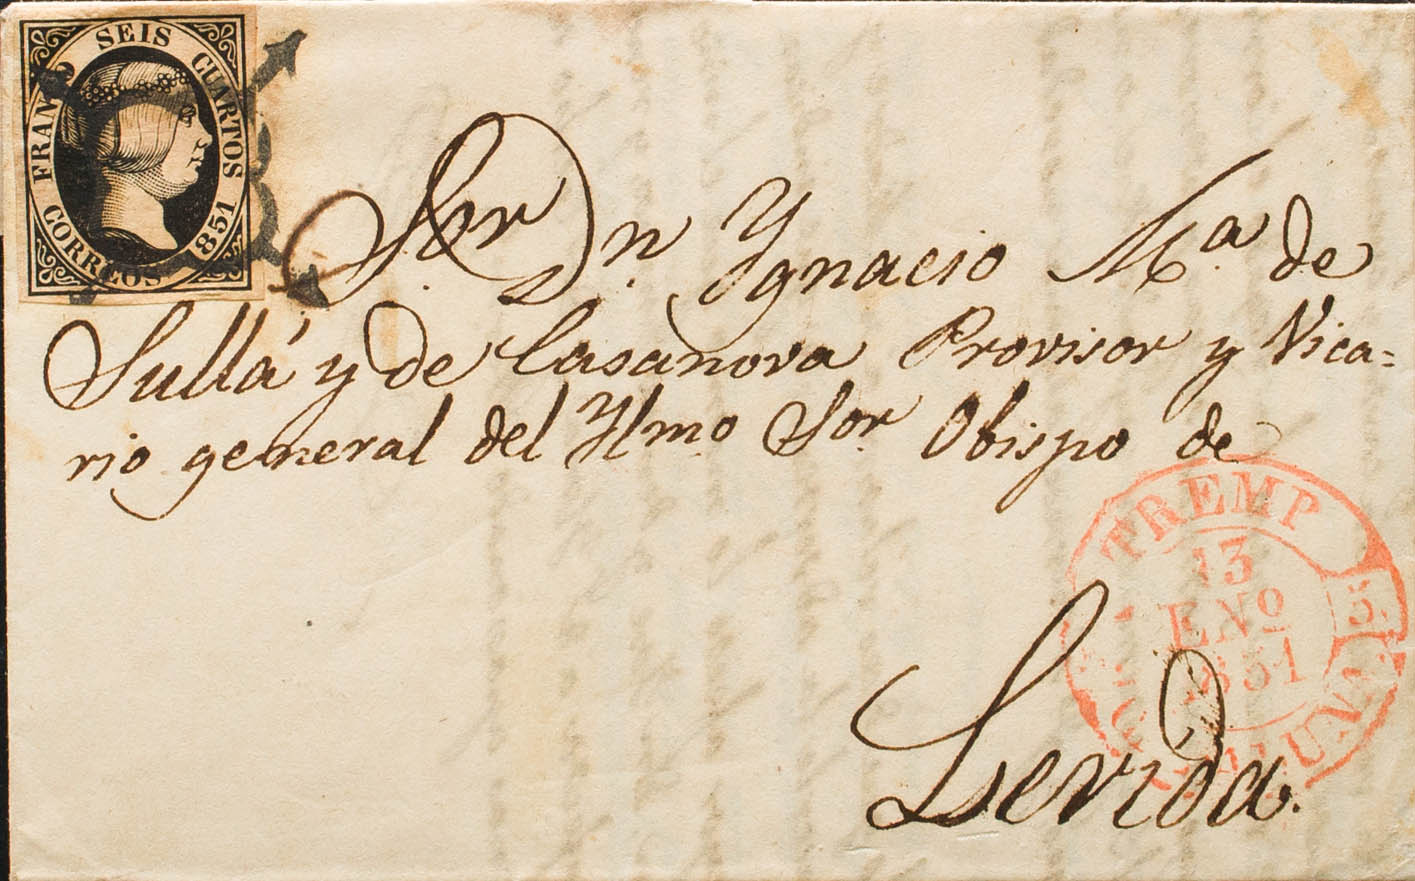 FRANCO SEIS CUARTOS
CORREOS 1851
Sor. Dn. Ygnacio Ma. de
Sullá y de Casanova Provisor y Vica=
rio general del Ylmo Sor. Obispo de
Lerida.
TREMP
13
ENO
851
5.
CATALUÑA